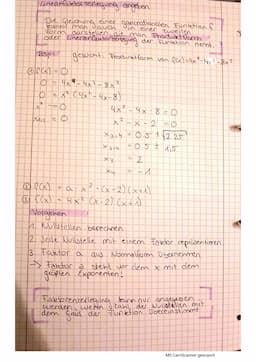 Linearfaktorzerlegung angeben
Die Gleichung einer ganzrationalen Funktion f
kann man auch in einer zweiten
Form darstellen, die man Produktform
oder Linearfaktorzerlegung der Funktion nennt.
Bsp: gesucht: Produktform von f(x)=4x⁴-4x³-8x²
① f(x) = 0
0 = 4x⁴ - 4x³ - 8x²
0 = x² (4x² - 4x - 8)
x² = 0 4x² - 4x - 8 = 0
x₁,₂ = 0 x² - x - 2 = 0
x₃,₄ = 0.5 ± √2.25
x₃,₄ = 0.5 ± 1,5
x₃ = 2
x₄ = -1
② f(x) = a · x² · (x-2)(x+1)
③ f(x) = 4x² (x-2)(x+1)
Vorgehen
1. Nullstellen berechnen
2. Jede Nullstelle mit einem Faktor repräsentieren
3. Faktor a aus Normalform übernehmen
→ Faktor a steht vor dem x mit dem
größten Exponenten!
Faktorenzerlegung kann nur angegeben
werden, wenn Anzahl der Nullstellen mit
dem Grad der Funktion übereinstimmt
Mit CamScanner gescannt